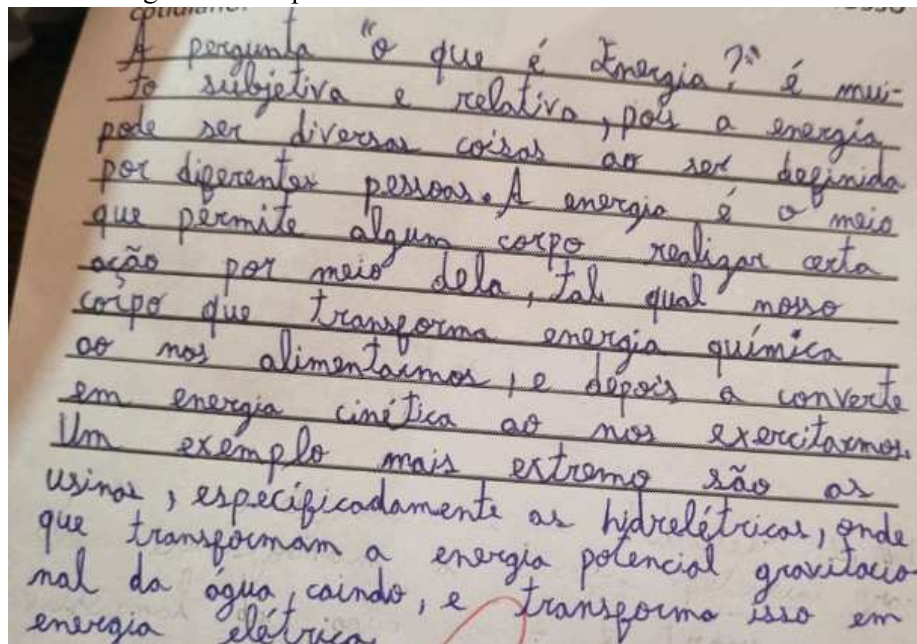 cotidiano.
A pergunta "o que é Energia?" é mui-
to subjetiva e relativa, pois a energia
pode ser diversas coisas ao ser definida
por diferentes pessoas. A energia é o meio
que permite algum corpo realizar certa
ação por meio dela, tal qual nosso
corpo que transforma energia química
ao nos alimentarmos, e depois a converte
em energia cinética ao nos exercitarmos.
Um exemplo mais extremo são as
usinas, especificadamente as hidrelétricas, onde
que transformam a energia potencial gravitacio
nal da água, caindo, e transforma isso em
energia elétrica